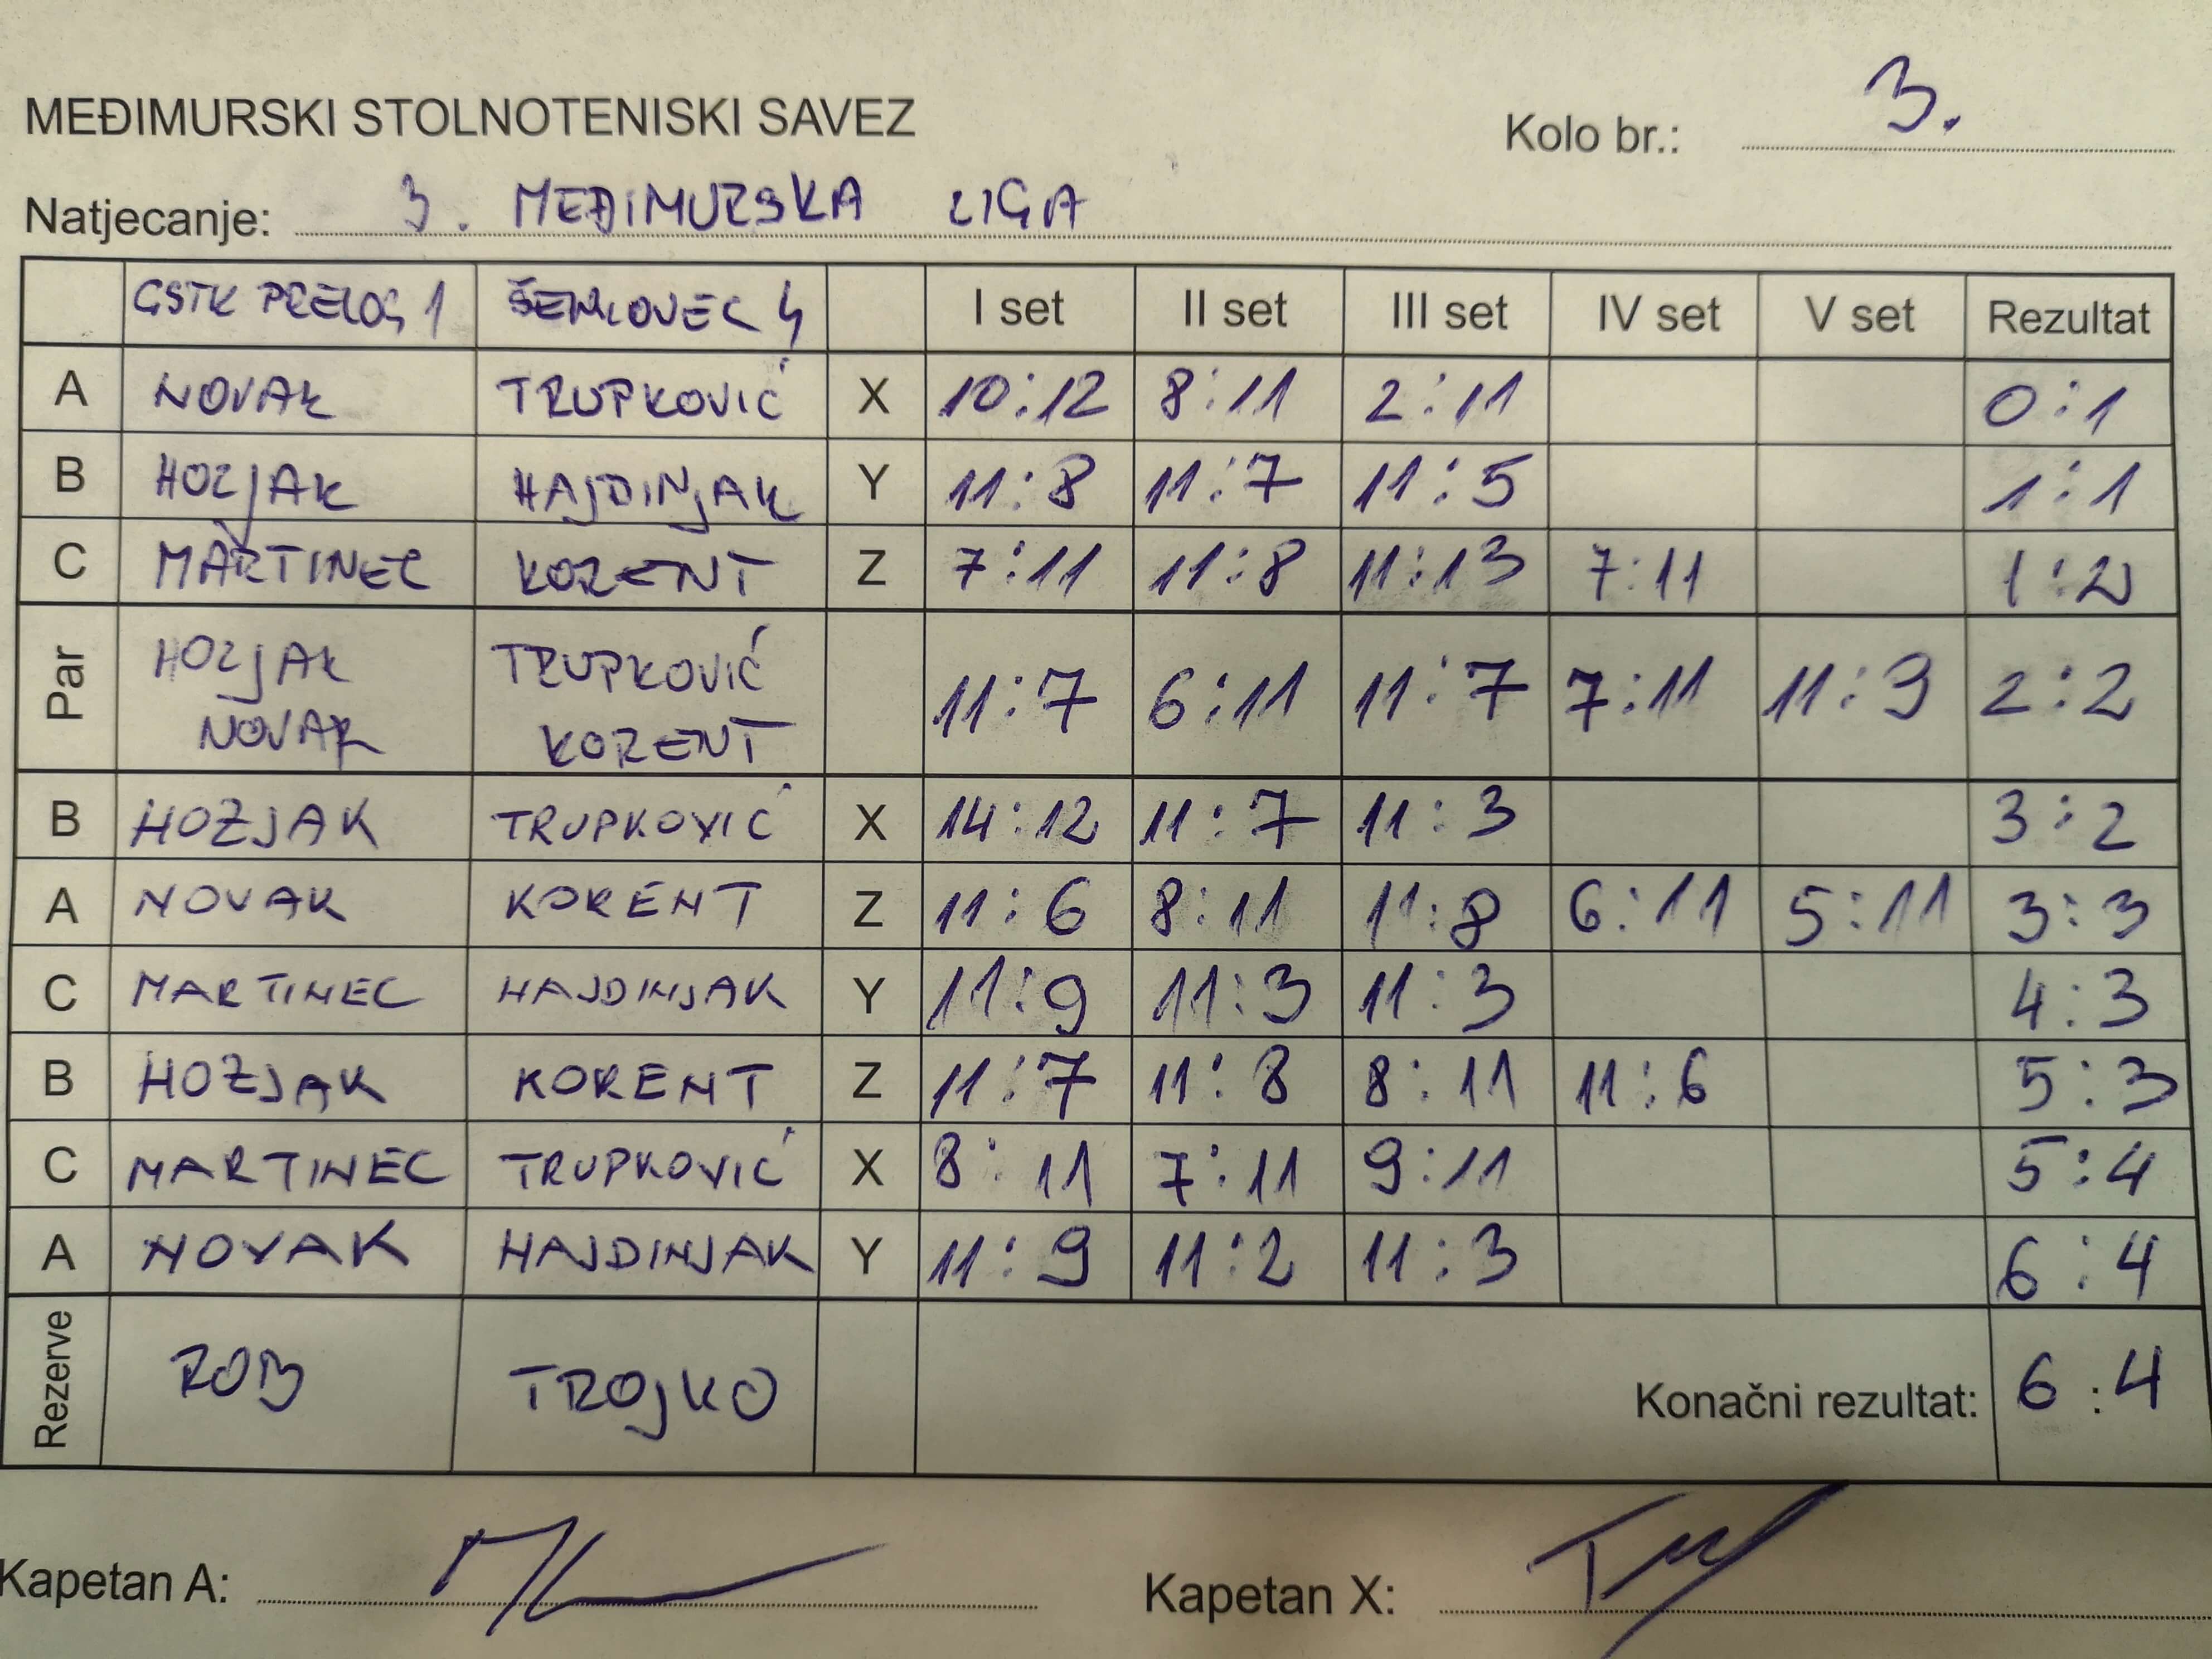 MEĐIMURSKI STOLNOTENISKI SAVEZ
Kolo br.: 3.
Natjecanje: 3. MEĐIMURSKA LIGA
GSTK PRELOG 1 ŠENKOVEC 4 I set II set III set IV set V set Rezultat
A NOVAK TRUPKOVIĆ X 10:12 8:11 2:11 0:1
B HOZJAK HAJDINJAK Y 11:8 11:7 11:5 1:1
C MARTINEC KORENT Z 7:11 11:8 11:13 7:11 1:2
Par HOZJAK TRUPKOVIĆ
NOVAK KORENT 11:7 6:11 11:7 7:11 11:9 2:2
B HOŽJAK TRUPKOVIĆ X 14:12 11:7 11:3 3:2
A NOVAK KORENT Z 11:6 8:11 11:8 6:11 5:11 3:3
C MARTINEC HAJDINJAK Y 11:9 11:3 11:3 4:3
B HOŽJAK KORENT Z 11:7 11:8 8:11 11:6 5:3
C MARTINEC TRUPKOVIĆ X 8:11 7:11 9:11 5:4
A NOVAK HAJDINJAK Y 11:9 11:2 11:3 6:4
Rezerve ROB TROJKO Konačni rezultat: 6:4
Kapetan A: Kapetan X: